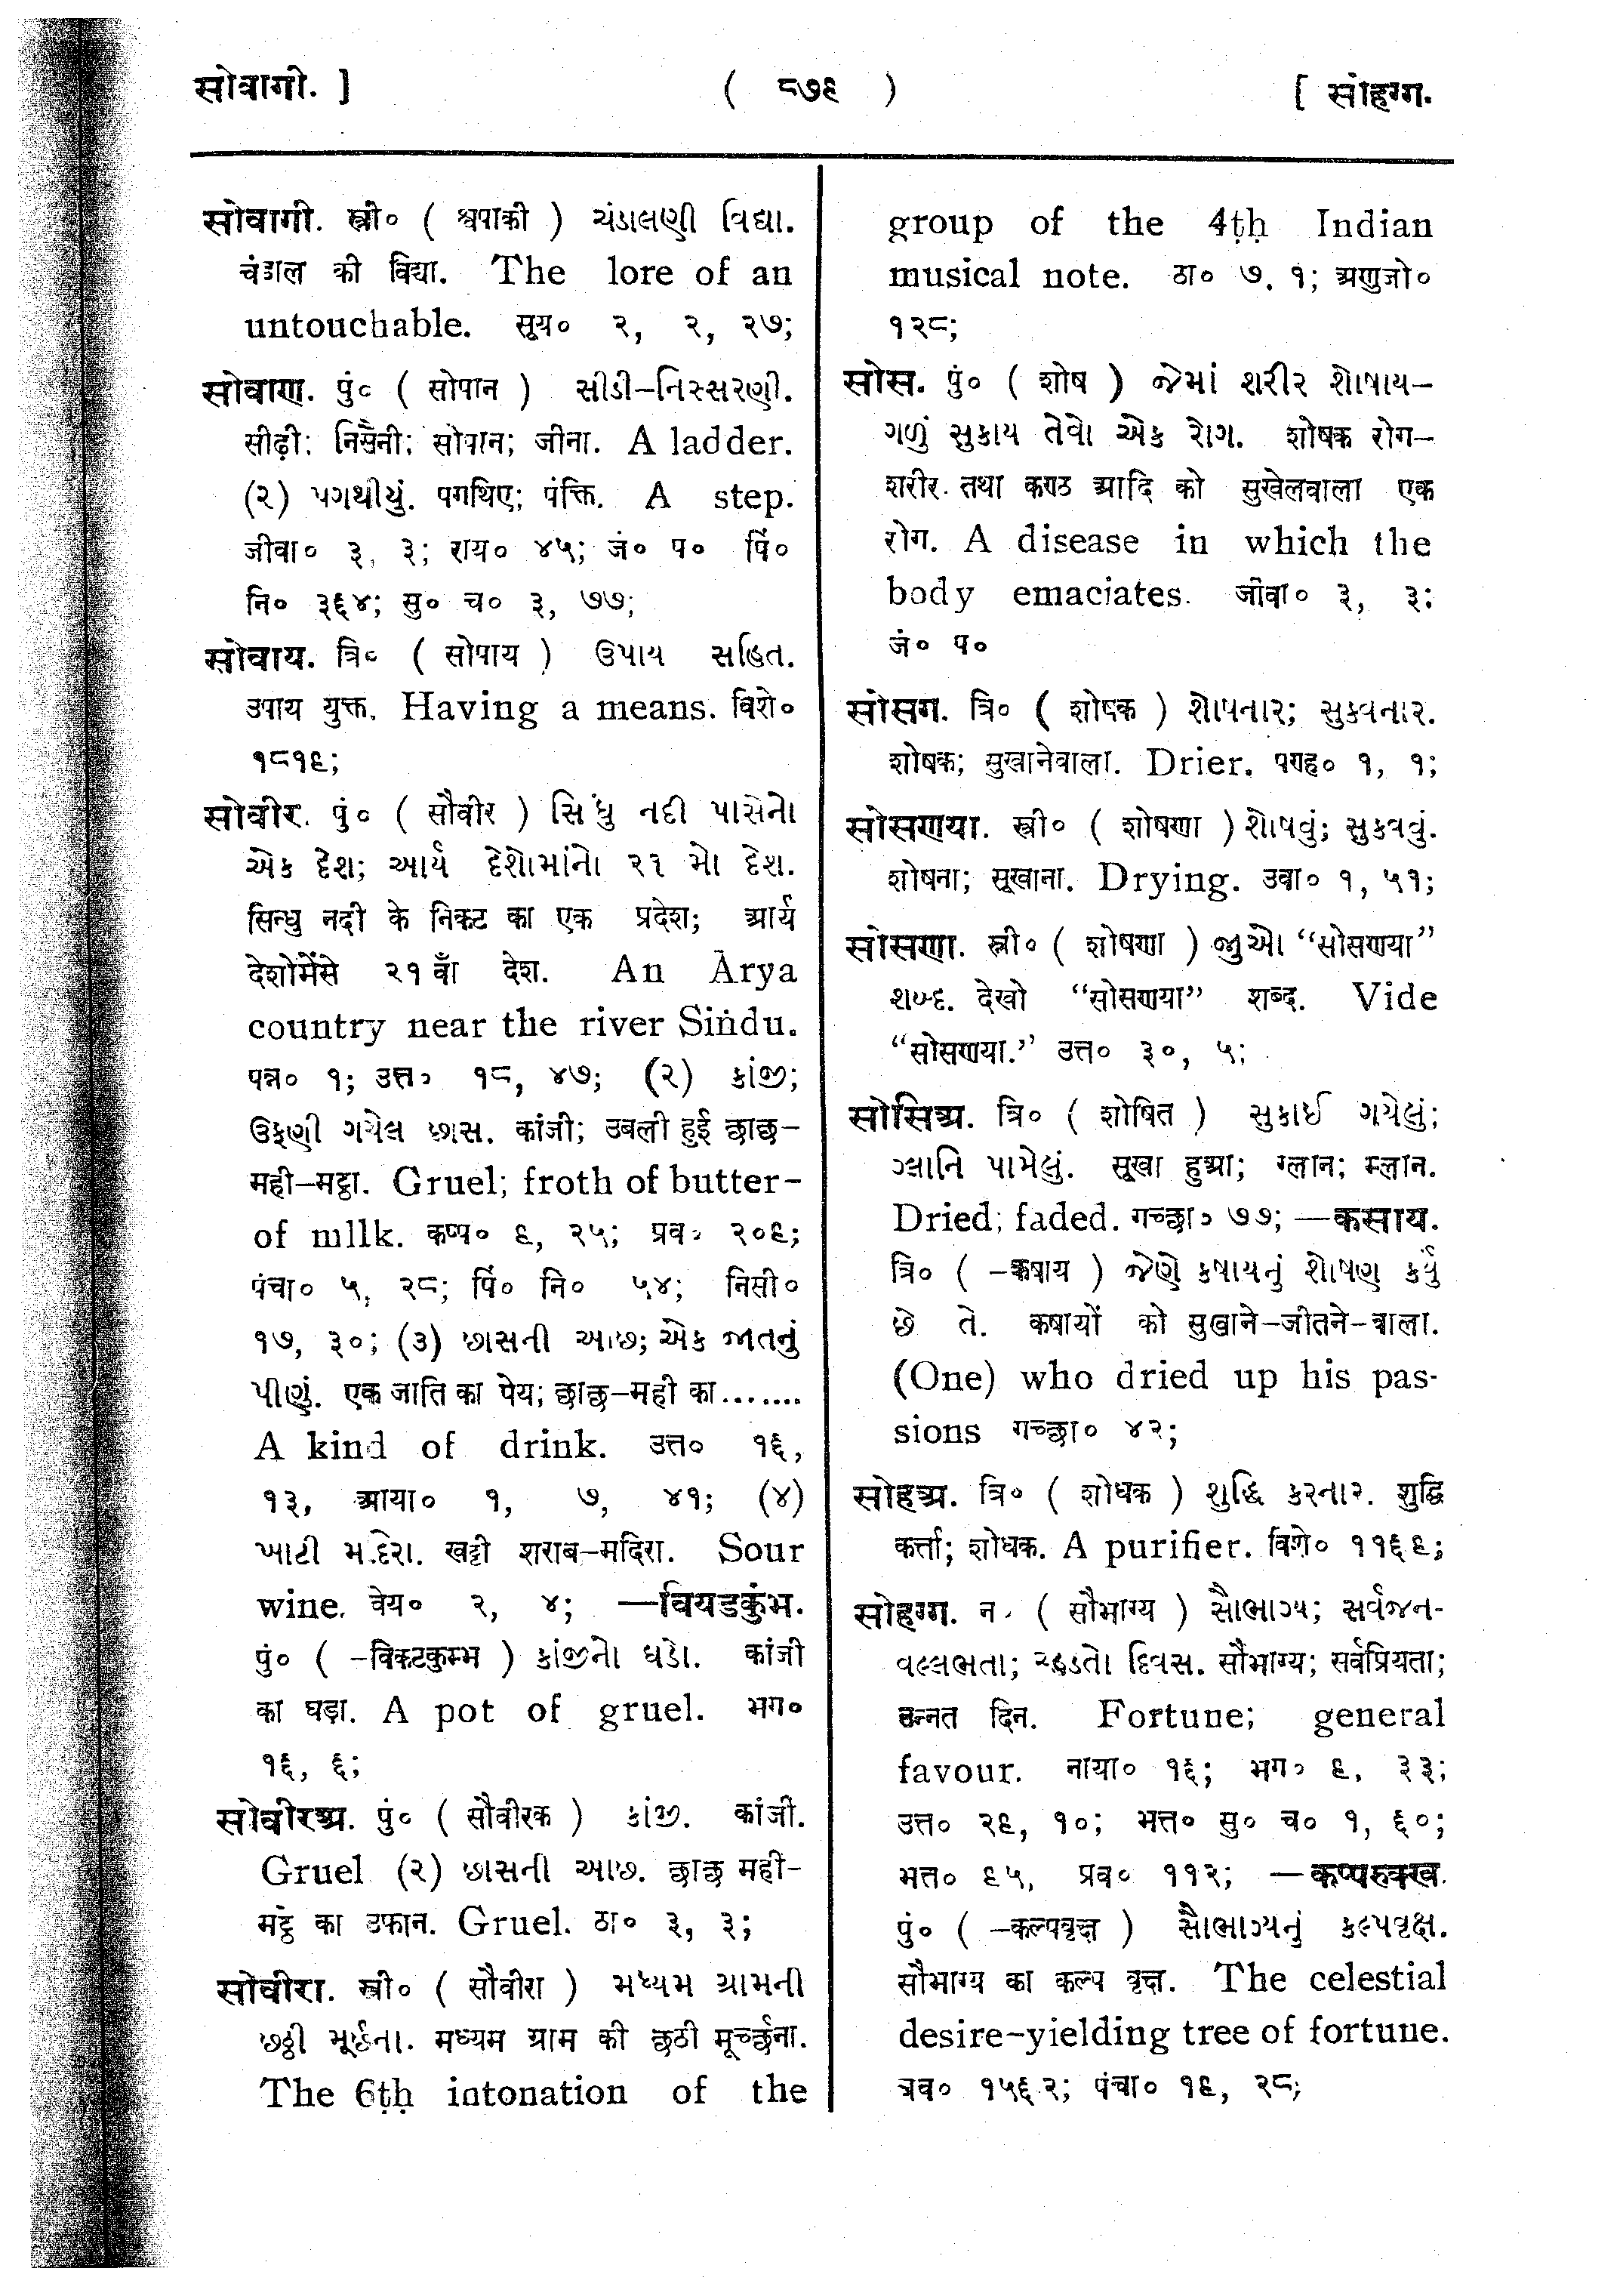 सोवागी. ]
( ८७९ )
[ सोहग्ग.
सोवागी. स्त्री० ( श्वपाकी ) ચંડાલણી વિદ્યા.
चंडाल की विद्या. The lore of an
untouchable. सूय० २, २, २७;
सोवाण. पुं० ( सोपान ) સીડી–નિસ્સરણી.
सीढ़ी; निसैनी; सोपान; जीना. A ladder.
(२) પગથીયું. पगथिए; पंक्ति. A step.
जीवा० ३, ३; राय० ४५; जं० प० पिं०
नि० ३६४; सु० च० ३, ७७;
सोवाय. त्रि० ( सोपाय ) ઉપાય સહિત.
उपाय युक्त. Having a means. विशे०
१८१९;
सोवीर. पुं० ( सौवीर ) સિંધુ નદી પાસેનો
એક દેશ; આર્ય દેશોમાંનો ૨૧ મો દેશ.
सिन्धु नदी के निकट का एक प्रदेश; आर्य
देशोमेंसे २१ वाँ देश. An Ārya
country near the river Sindu.
पन्न० १; उत्त० १८, ४७; (२) કાંજી;
ઉફણી ગયેલ છાસ. कांजी; उबली हुई छाछ–
मही–मट्ठा. Gruel; froth of butter-
of mllk. कप्प० ९, २५; प्रव० २०९;
पंचा० ५, २८; पिं० नि० ५४; निसी०
१७, ३०; (३) છાસની આછ; એક જાતનું
પીણું. एक जाति का पेय; छाछ–मही का.......
A kind of drink. उत्त० १६,
१३, आया० १, ७, ४१; (४)
ખાટી મદિરા. खट्टी शराब–मदिरा. Sour
wine. वेय० २, ४; —वियडकुंभ.
पुं० ( –विकटकुम्भ ) કાંજીનો ઘડો. कांजी
का घड़ा. A pot of gruel. भग०
१६, ६;
सोवीरअ. पुं० ( सौवीरक ) કાંજી. कांजी.
Gruel (२) છાસની આછ. छाछ मही–
मट्ठे का उफान. Gruel. ठा० ३, ३;
सोवीरा. स्त्री० ( सौवीरा ) મધ્યમ ગ્રામની
છઠ્ઠી મૂર્છના. मध्यम ग्राम की छठी मूर्च्छना.
The 6ṭḥ intonation of the
group of the 4ṭḥ Indian
musical note. ठा० ७, १; अणुजो०
१२८;
सोस. पुं० ( शोष ) જેમાં શરીર શોષાય–
ગળું સુકાય તેવો એક રોગ. शोषक रोग–
शरीर तथा कण्ठ आदि को सुखेलवाला एक
रोग. A disease in which the
body emaciates. जीवा० ३, ३;
जं० प०
सोसग. त्रि० ( शोषक ) શોષનાર; સુકવનાર.
शोषक; सुखानेवाला. Drier. पण्ह० १, १;
सोसणया. स्त्री० ( शोषणा ) શોષવું; સુકવવું.
शोषना; सूखाना. Drying. उवा० १, ५१;
सोसणा. स्त्री० ( शोषणा ) જુઓ “सोसणया”
શબ્દ. देखो “सोसणया” शब्द. Vide
“सोसणया.” उत्त० ३०, ५;
सोसिअ. त्रि० ( शोषित ) સુકાઈ ગયેલું;
ગ્લાનિ પામેલું. सूखा हुआ; ग्लान; म्लान.
Dried; faded. गच्छा० ७७; —कसाय.
त्रि० ( –कषाय ) જેણે કષાયનું શોષણ કર્યું
છે તે. कषायों को सुखाने–जीतने–वाला.
(One) who dried up his pas-
sions गच्छा० ४२;
सोहअ. त्रि० ( शोधक ) શુદ્ધિ કરનાર. शुद्धि
कर्त्ता; शोधक. A purifier. विशे० ११६९;
सोहग्ग. न० ( सौभाग्य ) સૌભાગ્ય; સર્વજન-
વલ્લભતા; ચ્હડતો દિવસ. सौभाग्य; सर्वप्रियता;
उन्नत दिन. Fortune; general
favour. नाया० १६; भग० ९, ३३;
उत्त० २९, १०; भत्त० सु० च० १, ६०;
भत्त० ९५, प्रव० ११२; —कप्परुक्ख.
पुं० ( –कल्पवृक्ष ) સૌભાગ્યનું કલ્પવૃક્ષ.
सौभाग्य का कल्प वृक्ष. The celestial
desire–yielding tree of fortune.
प्रव० १५६२; पंचा० १९, २८;